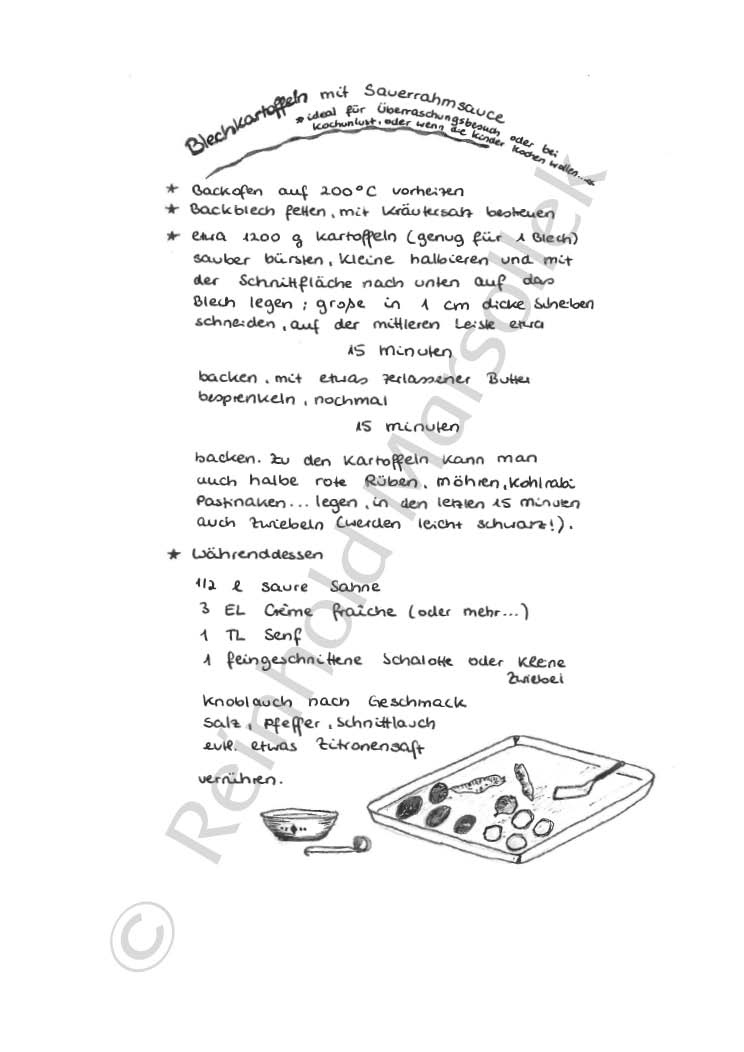 Blechkartoffeln mit Sauerrahmsauce
* ideal für Überraschungsbesuch oder bei
Kochunlust, oder wenn die Kinder kochen wollen...
* Backofen auf 200°C vorheizen
* Backblech fetten, mit Kräutersalz bestreuen
* etwa 1200 g Kartoffeln (genug für 1 Blech)
sauber bürsten, kleine halbieren und mit
der Schnittfläche nach unten auf das
Blech legen; große in 1 cm dicke Scheiben
schneiden, auf der mittleren Leiste etwa
15 Minuten
backen, mit etwas zerlassener Butter
besprenkeln, nochmal
15 Minuten
backen. Zu den Kartoffeln kann man
auch halbe rote Rüben, Möhren, Kohlrabi
Pastinaken... legen, in den letzten 15 Minuten
auch Zwiebeln (werden leicht schwarz!).
* Währenddessen
1/2 l saure Sahne
3 EL Crème fraîche (oder mehr...)
1 TL Senf
1 feingeschnittene Schalotte oder kleine
Zwiebel
Knoblauch nach Geschmack
Salz, Pfeffer, Schnittlauch
evtl. etwas Zitronensaft
verrühren.
© Reinhold Marsollek